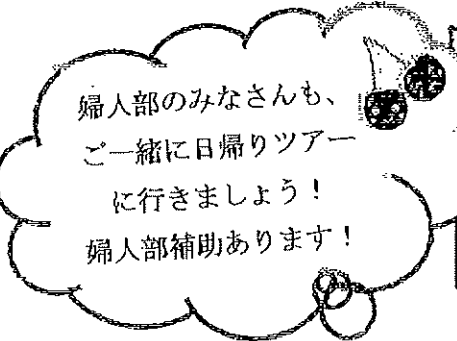 婦人部のみなさんも、
ご一緒に日帰りツアー
に行きましょう！
婦人部補助あります！